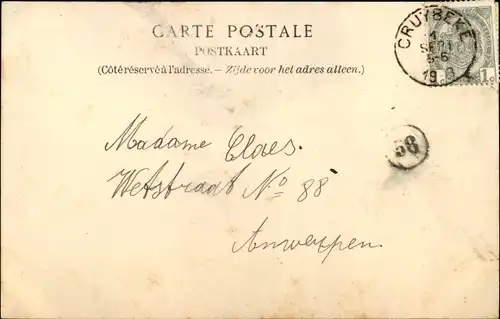 CARTE POSTALE
POSTKAART
(Côté réservé à l'adresse. — Zijde voor het adres alleen.)
CRUYBEKE
SEPT
5-6
19
1c
58
Madame Claes.
Wetstraat No 88
Anwerpen.